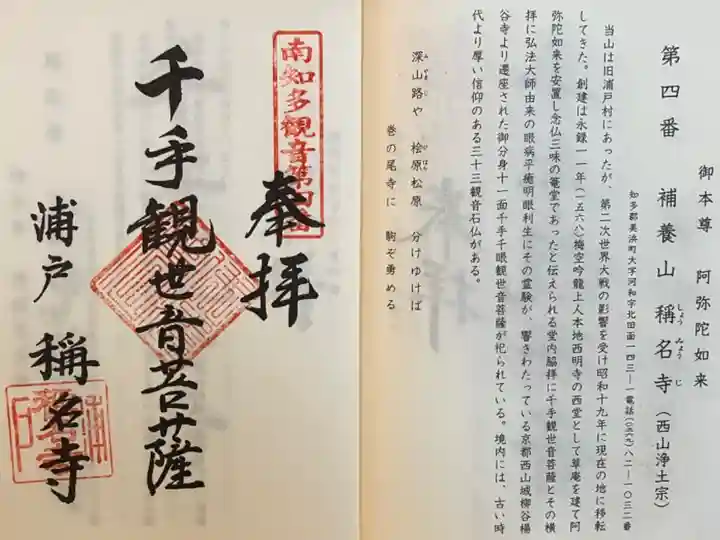 御本尊 阿弥陀如来
第四番 補養山 稱名寺(西山浄土宗)
しょうみょうじ
知多郡美浜町大字河和字北田面一四三―一電話(〇五六九)八二―一〇三二番
当山は旧浦戸村にあったが、第二次世界大戦の影響を受け昭和十九年に現在の地に移転
してきた。創建は永録一一年(一五六八)梅空吟龍上人本地西明寺の西堂として草庵を建て阿
弥陀如来を安置し念仏三昧の篭堂であったと伝えられる堂内脇拝に千手観世音菩薩とその横
拝に弘法大師由来の眼病平癒明眼利生にその霊験が、響きわたっている京都西山城柳谷楊
谷寺より遷座された御分身十一面千手千眼観世音菩薩が祀られている。境内には、古い時
代より厚い信仰のある三十三観音石仏がある。
深山路や 桧原松原 分けゆけば
みやまじ ひばら
巻の尾寺に 駒ぞ勇める
南知多観音第四番
奉拝
千手観世音菩薩
浦戸 稱名寺